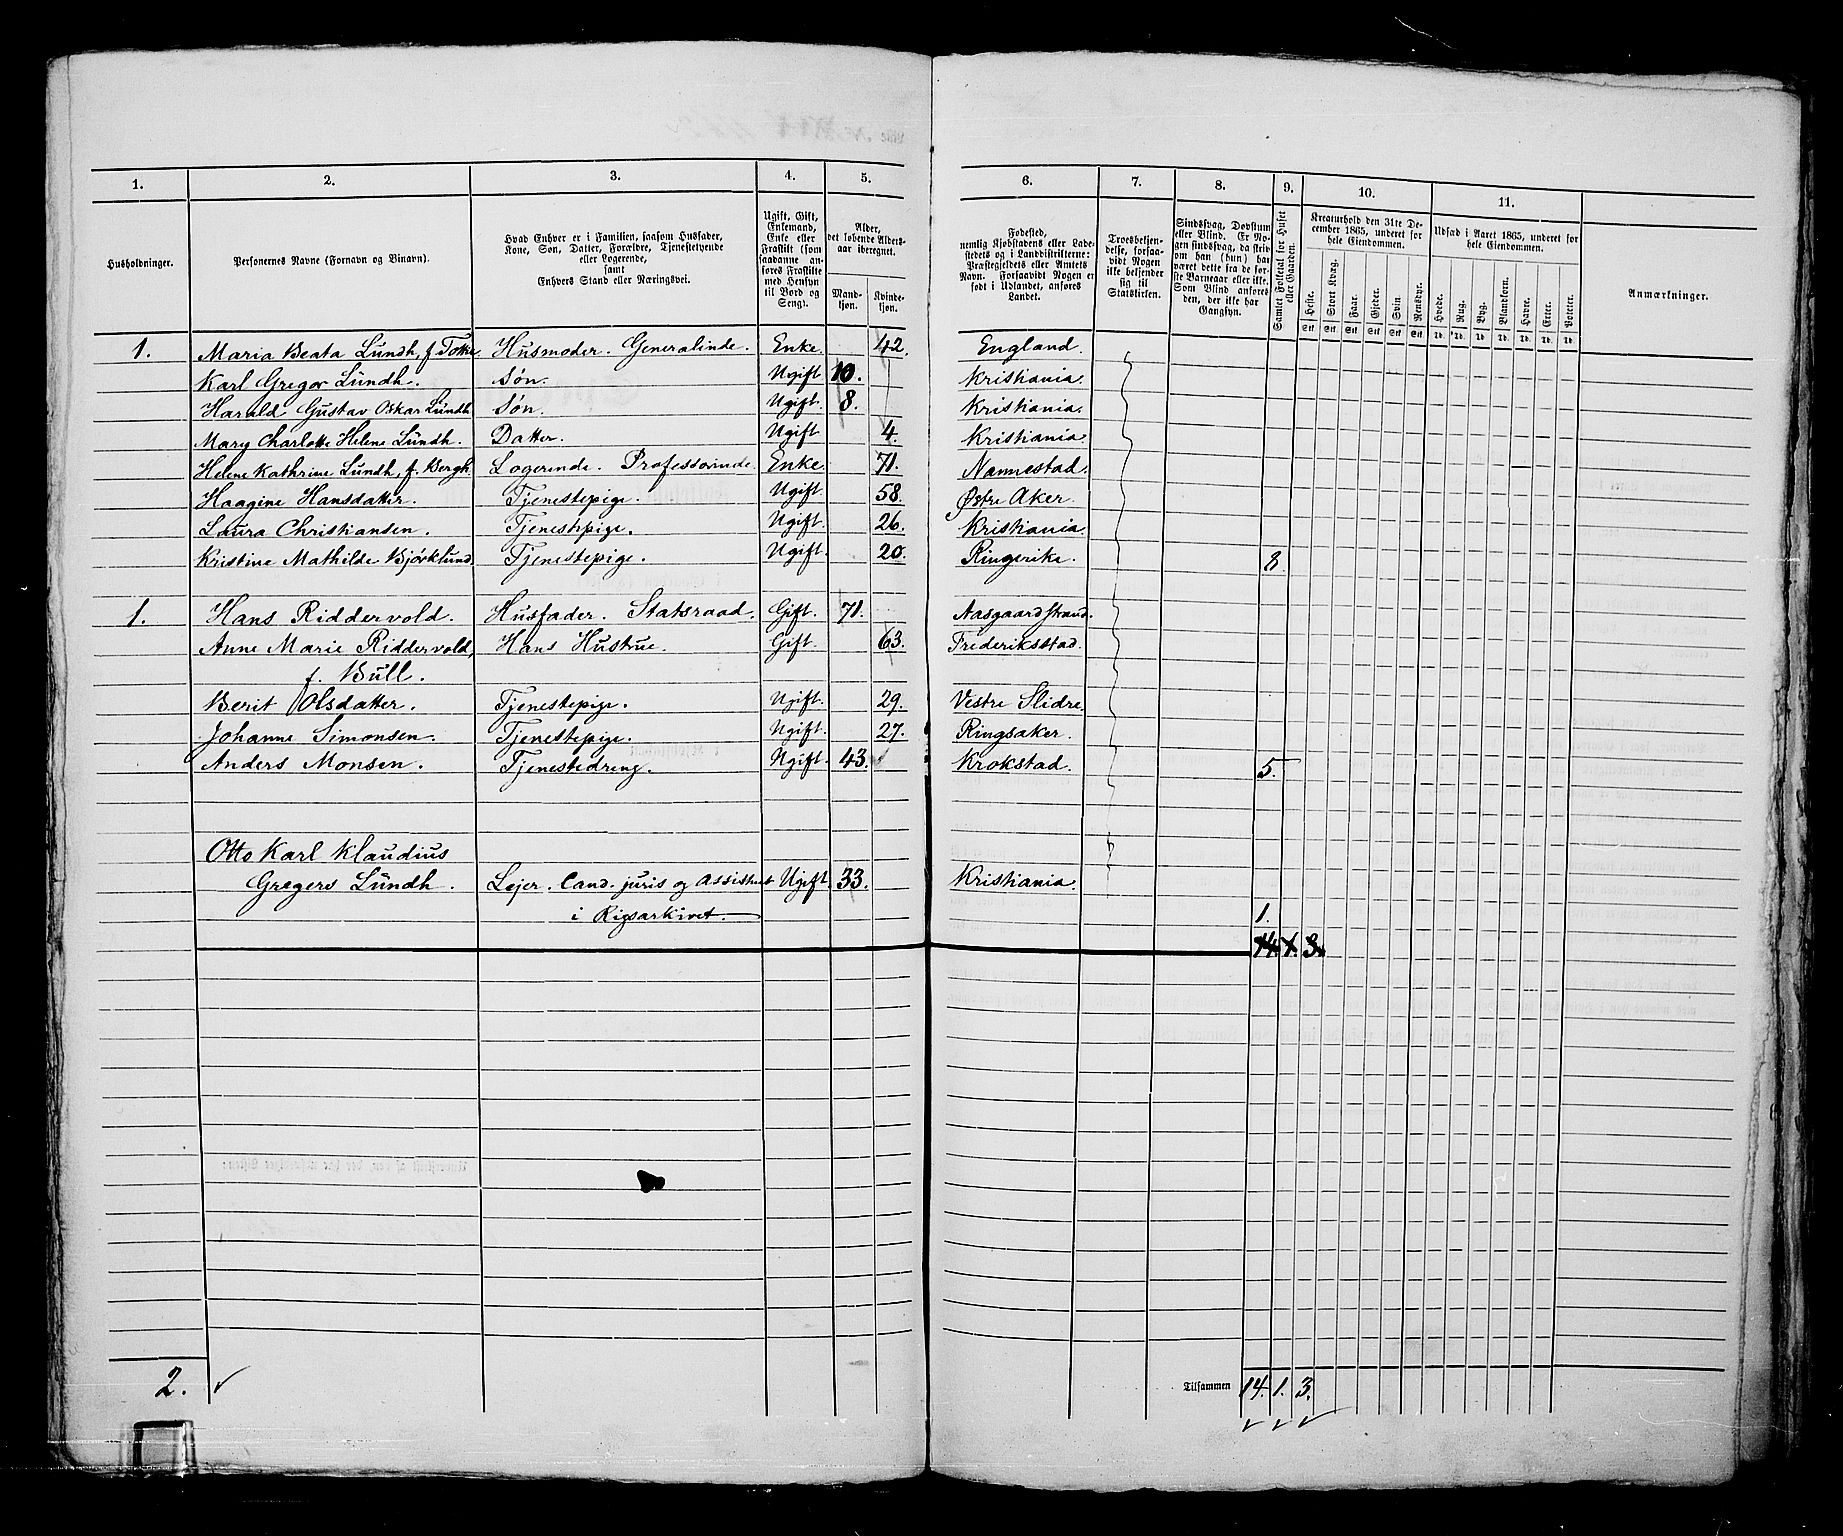 1. 2. 3. 4. 5. 6. 7. 8. 9. 10. 11.
Husholdninger.
Personernes Navne (Fornavn og Binavn).
Hvad Enhver er i Familien, saasom Husfader,
Kone, Søn, Datter, Forældre, Tjenestetyende
eller Logerende,
samt
Enhvers Stand eller Næringsvei.
Ugift, Gift,
Enkemand,
Enke eller
Fraskilt (som
saadanne an-
føres Fraskilte
med Hensyn
til Bord og
Seng).
Alder,
det løbende Alders-
aar iberegnet.
Mand-
kjøn.
Kvinde-
kjøn.
Fødested,
nemlig Kjøbstadens eller Lade-
stedets og i Landdistrikterne:
Præstegjeldets eller Amtets
Navn. Forsaavidt Nogen er
født i Udlandet, anføres
Landet.
Troesbekjen-
delse, forsaa-
vidt Nogen
ikke bekjender
sig til
Statskirken.
Sindssvag, Døvstum
eller Blind. Er No-
gen sindssvag, da skriv
om han (hun) har
været dette fra de før-
ste Barneaar eller ikke.
Som Blind anføres
den, der ikke har
Gangsyn.
Samlet Folketal for Huset
eller Gaarden.
Kreaturhold den 31te De-
cember 1865, underet for
hele Eiendommen.
Heste. Stort Kvæg. Faar. Gjeder. Svin. Rensdyr.
Stk Stk Stk Stk Stk Stk
Udsæd i Aaret 1865, underet for
hele Eiendommen.
Hvede. Rug. Byg. Blandkorn. Havre. Erter. Poteter.
Td. Td. Td. Td. Td. Td. Td.
Anmærkninger.
1. Maria Beata Lundh, f. Tottie Husmoder. Generalinde. Enke. 42. England.
Karl Gregor Lundh. Søn. Ugift. 10. Kristiania.
Harald Gustav Oskar Lundh Søn. Ugift. 8. Kristiania.
Mary Charlotte Helene Lundh. Datter. Ugift. 4. Kristiania.
Helene Kathrine Lundh, f. Bergh. Logerende. Professorinde. Enke. 71. Nannestad.
Haagine Hansdatter. Tjenestepige. Ugift. 58. Østre Aker.
Laura Christiansen. Tjenestepige. Ugift. 26. Kristiania.
Kristine Mathilde Bjørklund. Tjenestepige. Ugift. 20. Ringerike. 8.
1. Hans Riddervold. Husfader. Statsraad. Gift. 71. Aasgaardstrand.
Anne Marie Riddervold, Hans Hustrue. Gift. 63. Frederiksstad.
f. Bull.
Berit Olsdatter. Tjenestepige. Ugift. 29. Vestre Slidre.
Johanne Simonsen. Tjenestepige. Ugift. 27. Ringsaker.
Anders Monsen. Tjenestedreng. Ugift. 43. Krokstad. 5.
Otto Karl Klaudius
Gregers Lundh. Lejer. Cand. juris og Assistent Ugift. 33. Kristiania.
i Rigsarkivet. 1.
14. 1. 3.
2.
Tilsammen 14. 1. 3.